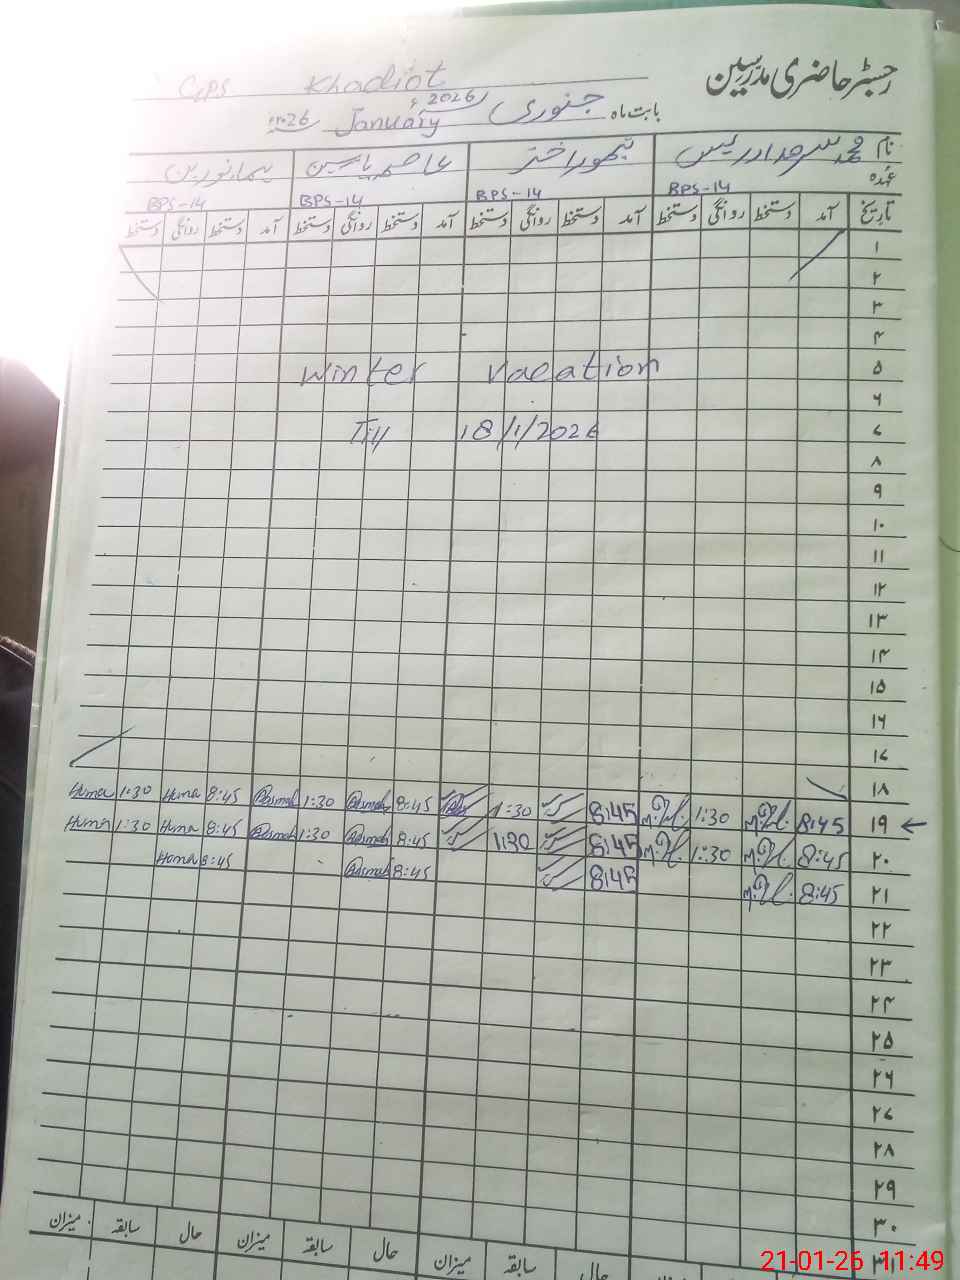 رجسٹر حاضری مدرسین
GPS Khadiot
بابت ماہ جنوری January 2026ء
نام محمد سرمد ادریس تیمور اختر عاصمہ یاسین ہما نورین
عہدہ BPS-14 BPS-14 BPS-14 BPS-14
تاریخ آمد دستخط روانگی دستخط آمد دستخط روانگی دستخط آمد دستخط روانگی دستخط آمد دستخط روانگی دستخط
۱
۲
۳
۴
Winter vacation ۵
۶
Till 18/1/2026 ۷
۸
۹
۱۰
۱۱
۱۲
۱۳
۱۴
۱۵
۱۶
۱۷
۱۸
Huma 1:30 Huma 8:45 1:30 8:45 1:30 8:45 1:30 8:45 ۱۹ ←
Huma 1:30 Huma 8:45 1:30 8:45 1:30 8:45 1:30 8:45 ۲۰
Huma 8:45 8:45 8:45 8:45 ۲۱
۲۲
۲۳
۲۴
۲۵
۲۶
۲۷
۲۸
۲۹
۳۰
۳۱
حال سابقہ میزان حال سابقہ میزان حال سابقہ میزان
21-01-26 11:49